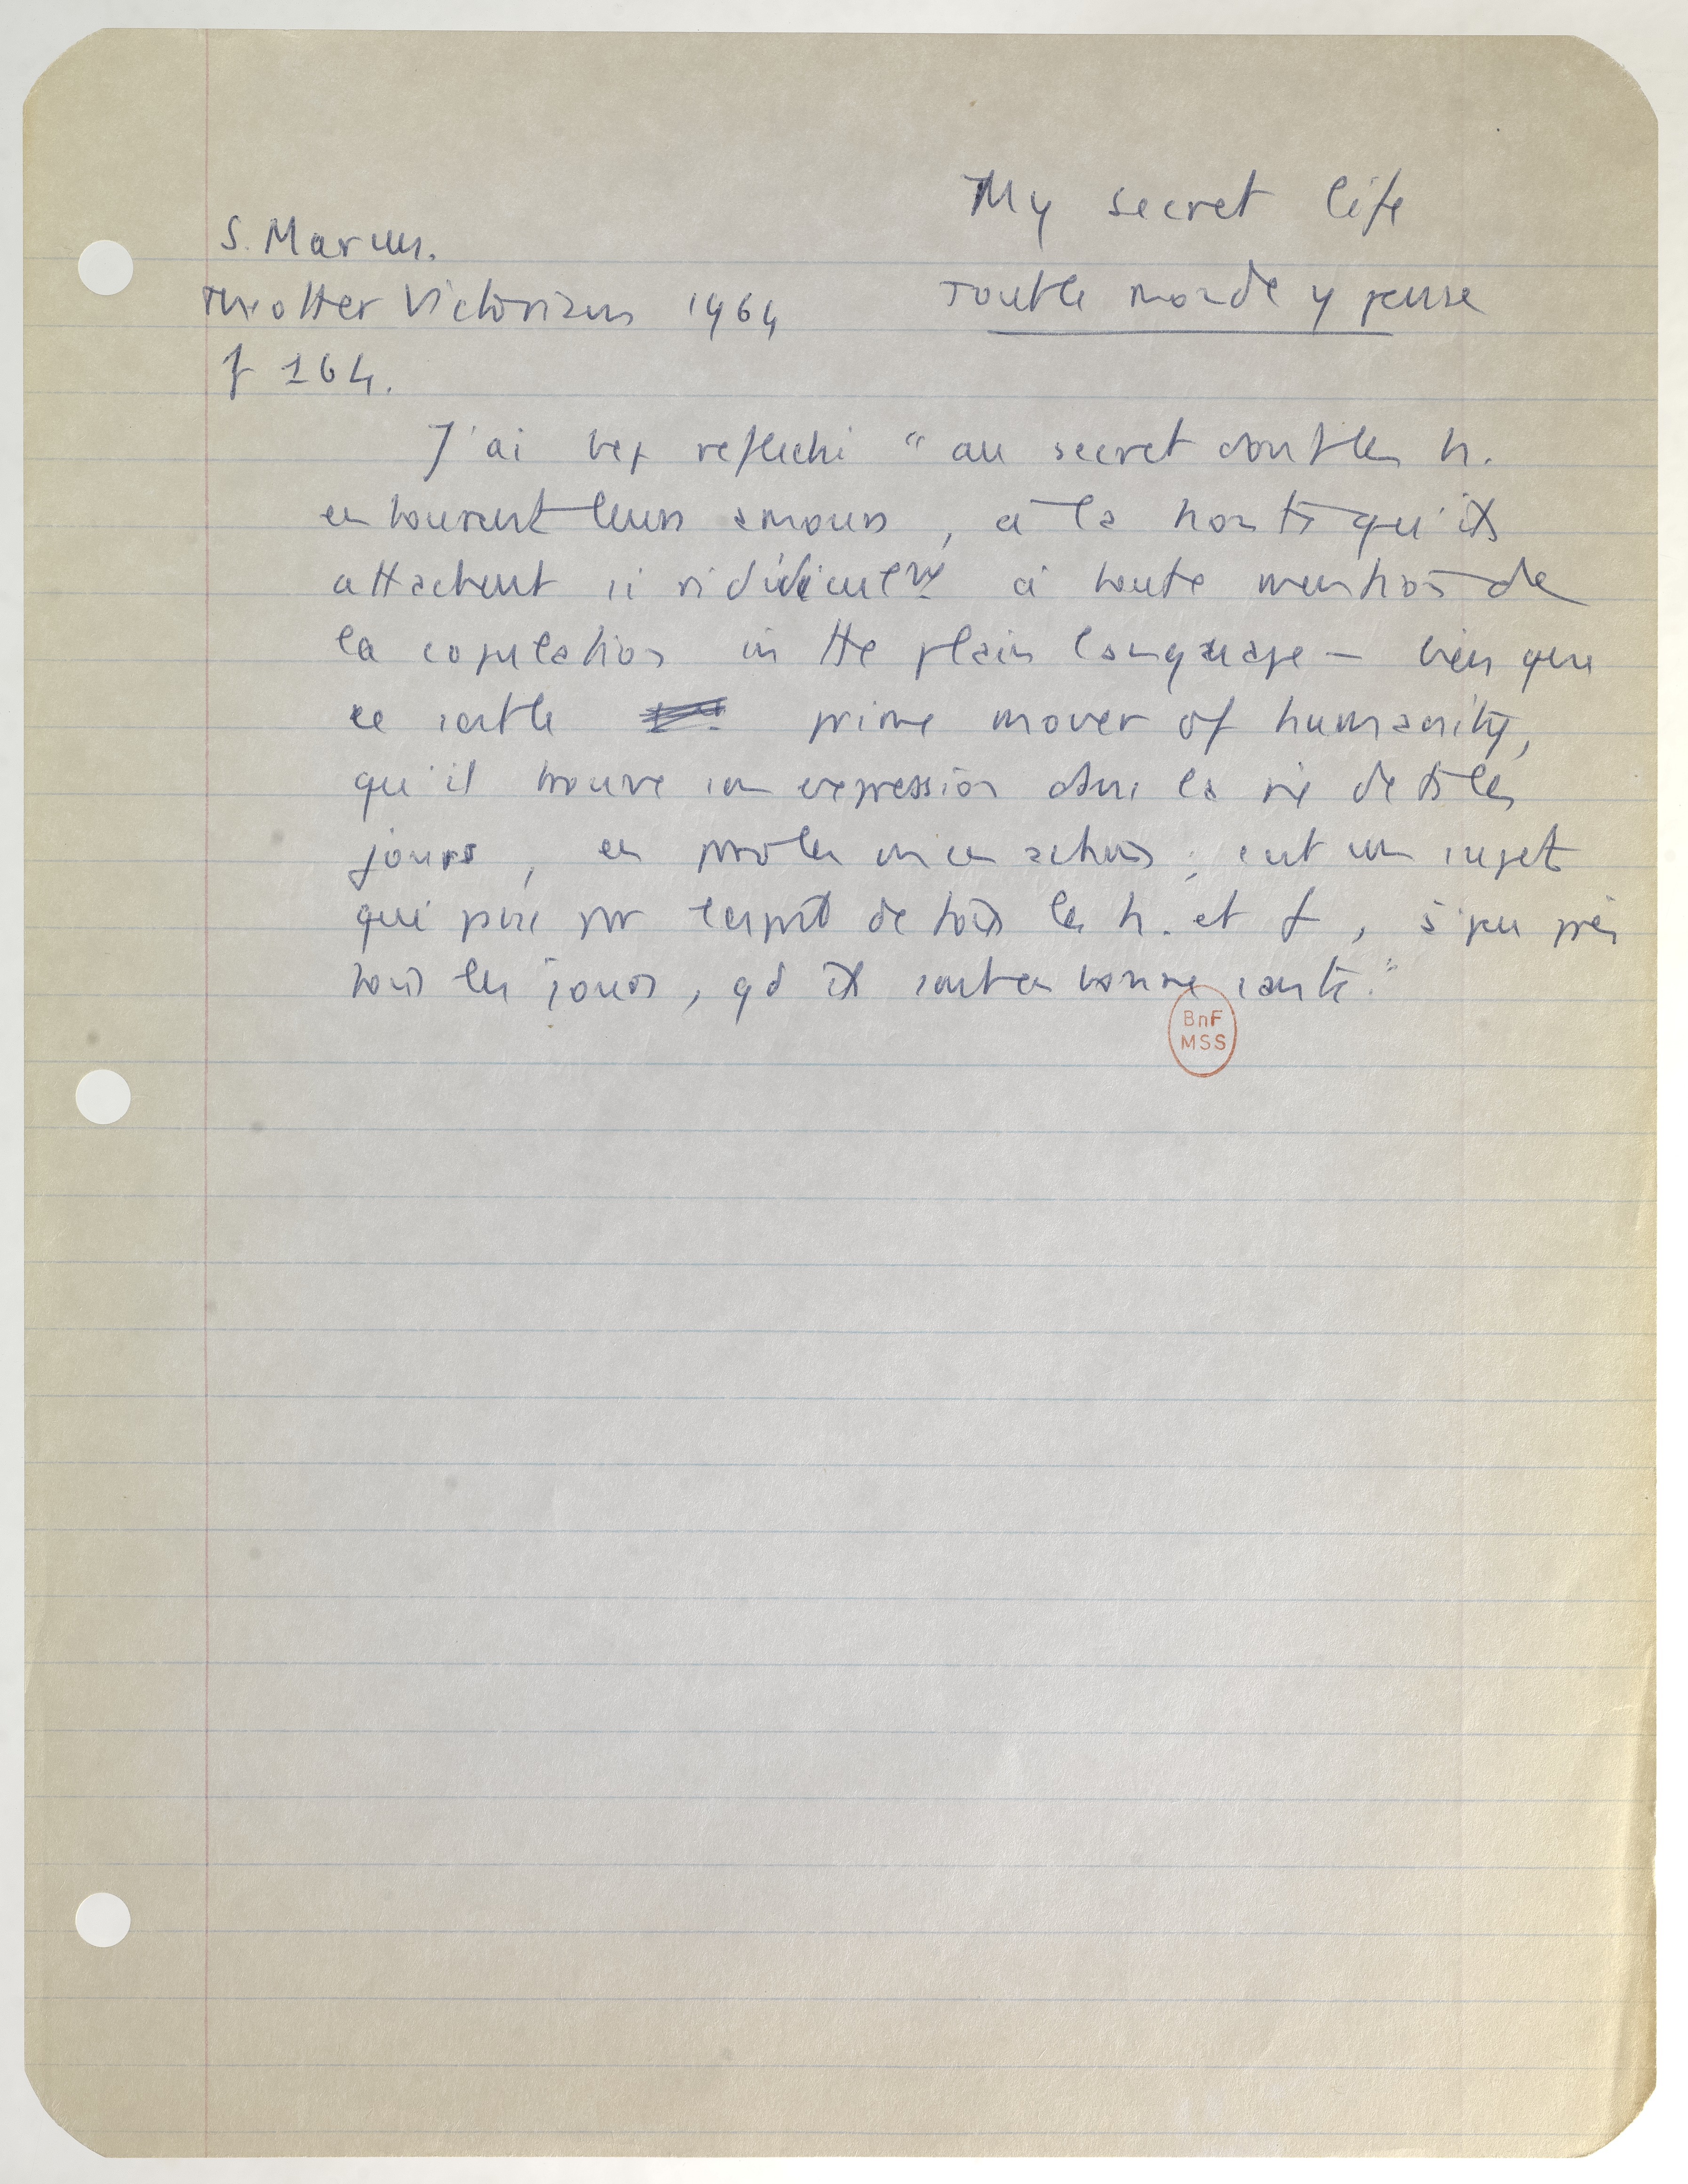 My secret life
Tout le monde y pense
S. Marcus.
The other Victorians 1964
p 164.
J'ai bcp reflechi "au secret dont les h.
entourent leurs amours, a la honte qu'ils
attachent si ridiculemt à toute mention de
la copulation in the plain language – bien que
ce soit le prime mover of humanity,
qu'il trouve son expression dans la vie de ts les
jours, en paroles ou en actions ; c'est un sujet
qui passe par l'esprit de tous les h. et f, à peu près
tous les jours, qd ils sont en bonne santé."
BnF
MSS